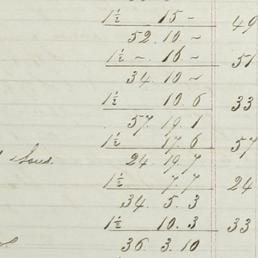 1½ 15 – 49
52. 10. –
1½ –. 16 – 51
34. 10 –
1½ 10. 6 33
57. 19. 1
1½ 17. 6 57
24 19. 7
1½ 7. 7 24
34. 5. 3
1½ 10. 3 33
36. 3. 10